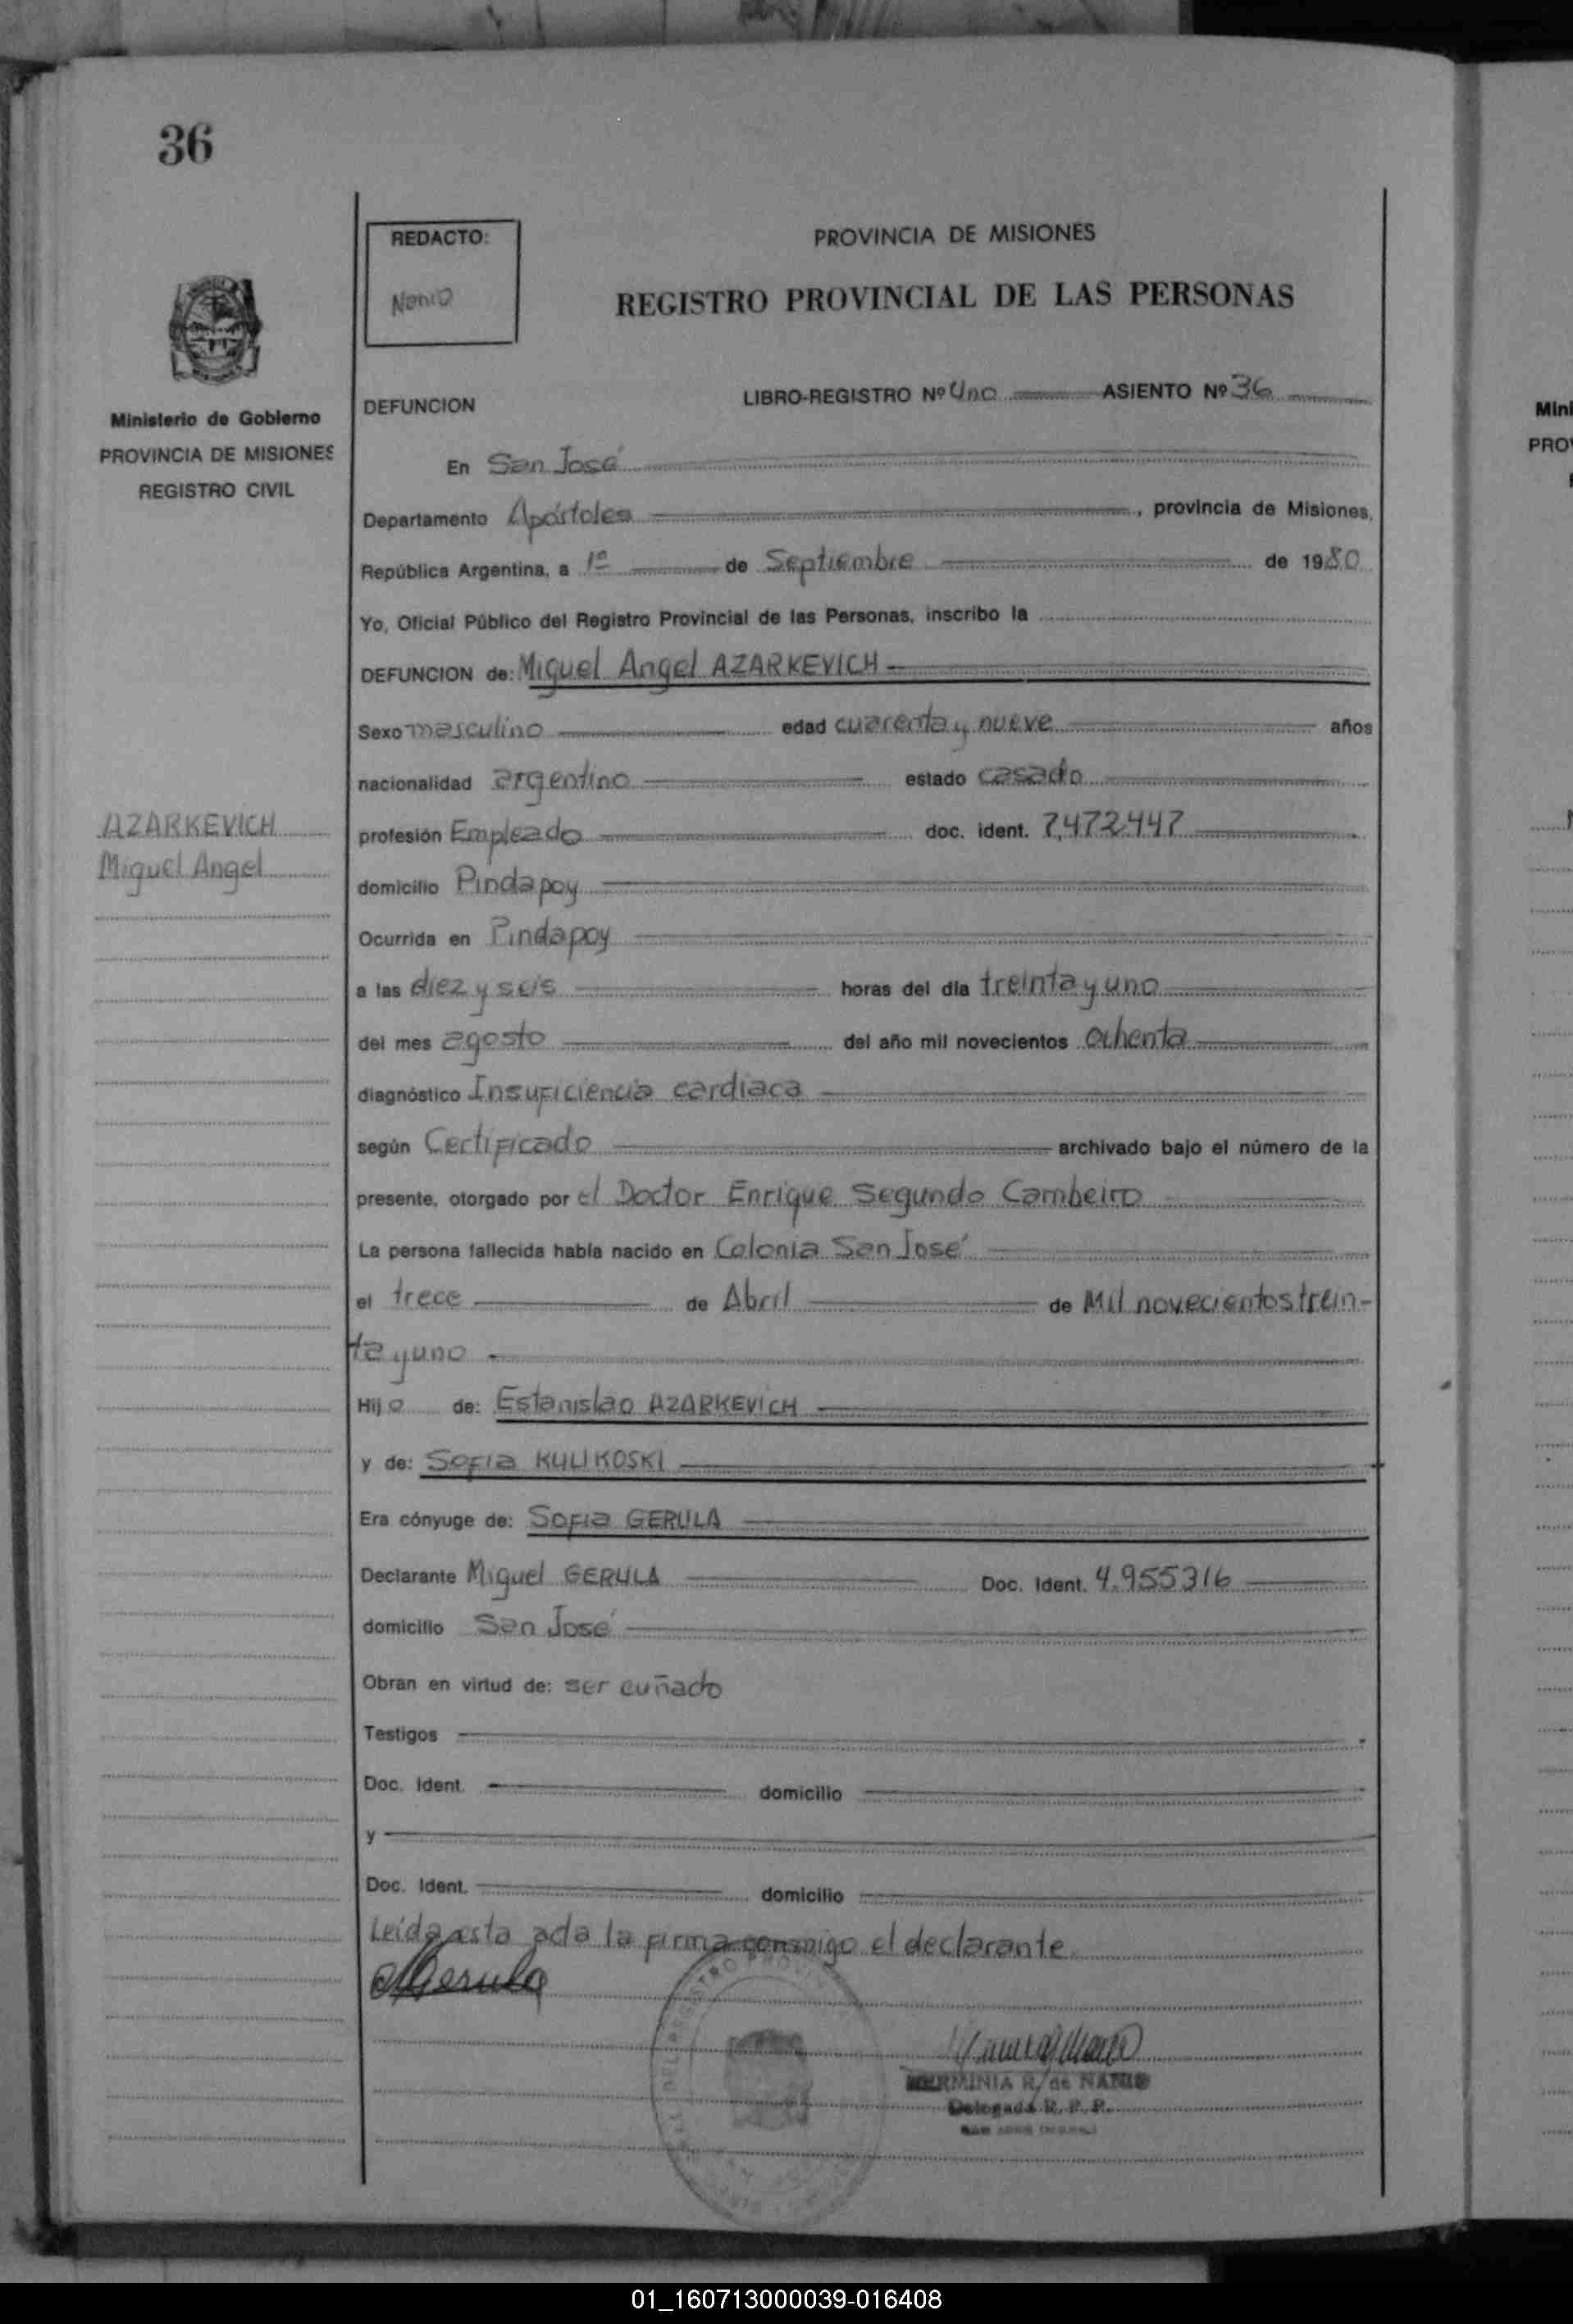 36
REDACTO:
Nanio
PROVINCIA DE MISIONES
REGISTRO PROVINCIAL DE LAS PERSONAS
Ministerio de Gobierno
PROVINCIA DE MISIONES
REGISTRO CIVIL
AZARKEVICH
Miguel Angel
DEFUNCION LIBRO-REGISTRO Nº Uno ASIENTO Nº 36
En San José
Departamento Apóstoles, provincia de Misiones,
República Argentina, a 1º de Septiembre de 1980
Yo, Oficial Público del Registro Provincial de las Personas, inscribo la
DEFUNCION de: Miguel Angel AZARKEVICH
Sexo masculino edad cuarenta y nueve años
nacionalidad argentino estado casado
profesión Empleado doc. ident. 7,472.447
domicilio Pindapoy
Ocurrida en Pindapoy
a las diez y seis horas del día treinta y uno
del mes agosto del año mil novecientos ochenta
diagnóstico Insuficiencia cardiaca
según Certificado archivado bajo el número de la
presente, otorgado por el Doctor Enrique Segundo Cambeiro
La persona fallecida había nacido en Colonia San José
el trece de Abril de Mil novecientos trein-
ta y uno
Hijo de: Estanislao AZARKEVICH
y de: Sofia KULIKOSKI
Era cónyuge de: Sofia GERULA
Declarante Miguel GERULA Doc. Ident. 4.955316
domicilio San José
Obran en virtud de: ser cuñado
Testigos
Doc. Ident. domicilio
y
Doc. Ident. domicilio
Leída esta acta la firma conmigo el declarante
MGerula
HERMINIA R. de NANIO
Delegada R. P. P.
Mini
PRO
01_160713000039-016408